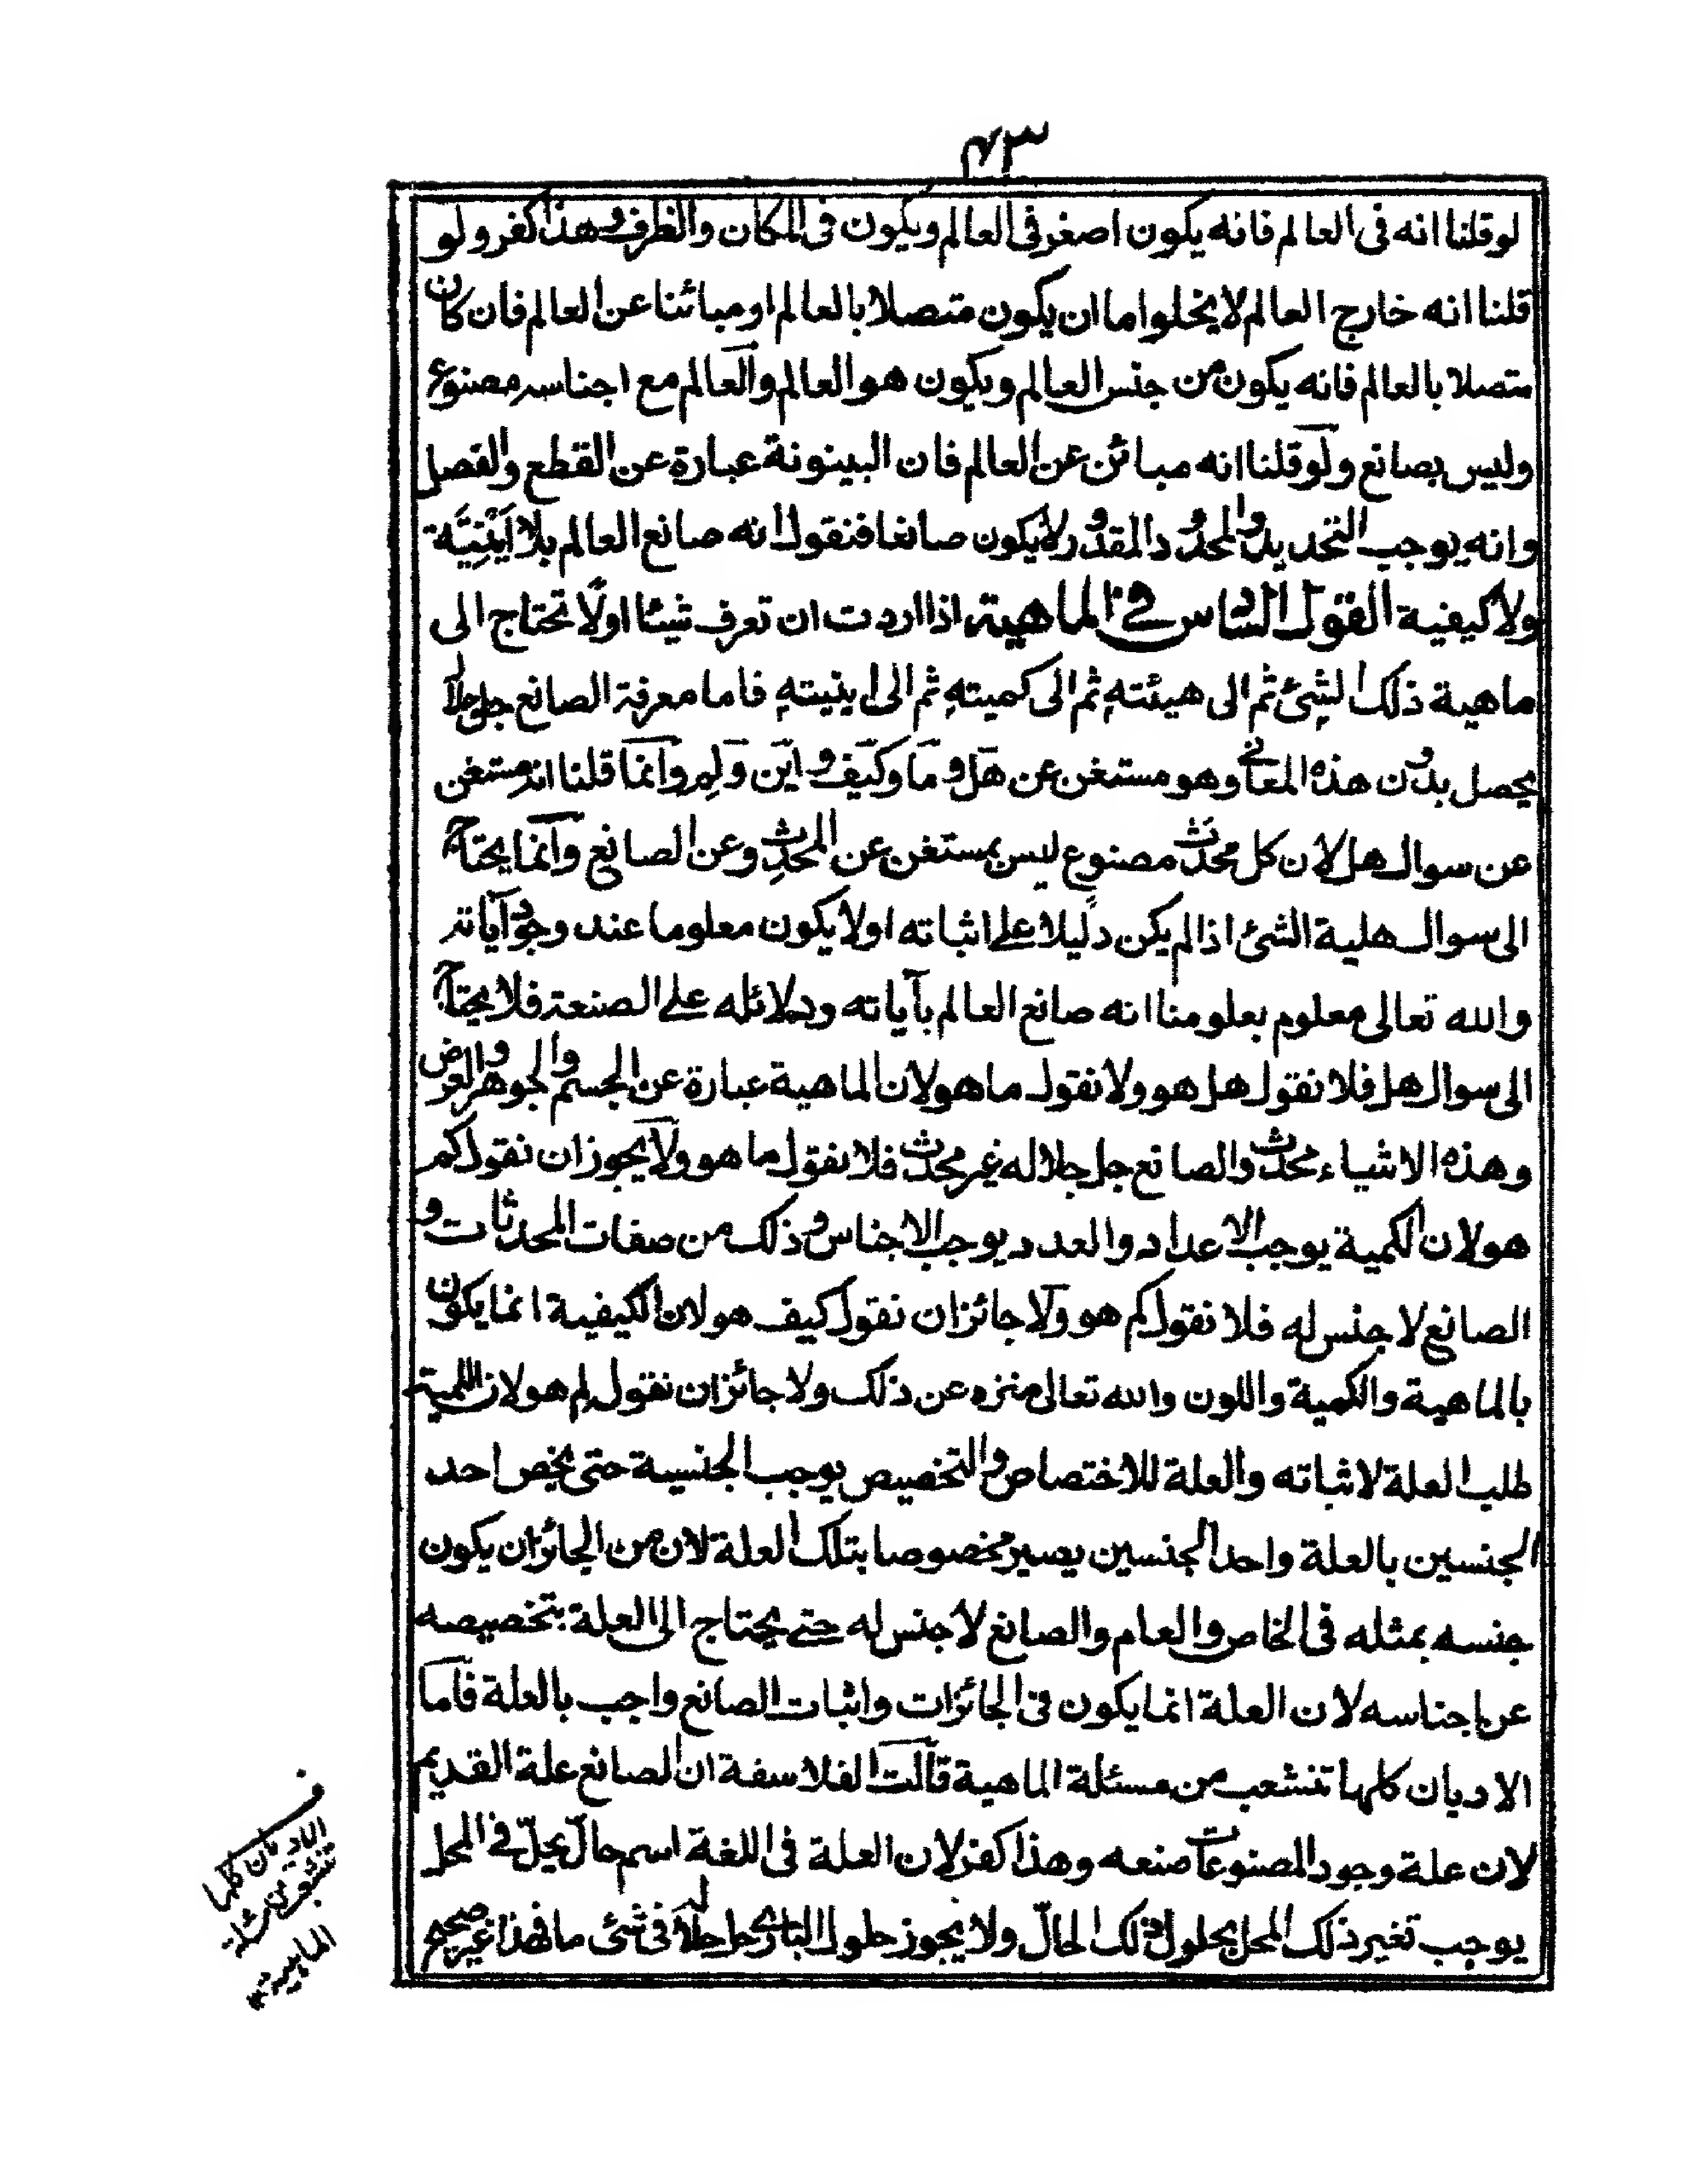 ٤٣
لو قلنا انه فى العالم فانه يكون اصغر فى العالم ويكون فى المكان والظرف وهذا كفر ولو
قلنا انه خارج العالم لا يخلوا ما ان يكون متصلا بالعالم او مبائنا عن العالم فان كان
متصلا بالعالم فانه يكون من جنس العالم ويكون هو العالم والعالم مع اجناسه مصنوع
وليس بصانع ولو قلنا انه مبائن عن العالم فان البينونة عبارة عن القطع والفصل
وانه يوجب التحديد والمحدود المقدور لا يكون صانعا فنقول انه صانع العالم بلا اَيْنِيَّة
ولا كيفية القول السادس فى الماهية اذا اردت ان تعرف شيئا اولًا تحتاج الى
ماهية ذلك الشئ ثم الى هيئته ثم الى كميته ثم الى اينيته فاما معرفة الصانع جل جلاله
يحصل بدون هذه المعانى وهو مستغن عن هل وما وكيف واين ولِم وانما قلنا انه مستغن
عن سوال هل لان كل محدَث مصنوع ليس بمستغن عن المحدِث وعن الصانع وانما يحتاج
الى سوال هلية الشئ اذا لم يكن دليلا على اثباته اولا يكون معلوما عند وجود آياته
والله تعالى معلوم بعلومنا انه صانع العالم بآياته ودلائله على الصنعة فلا يحتاج
الى سوال هل فلا نقول هل هو ولا نقول ما هو لان الماهية عبارة عن الجسم والجوهر والعرض
وهذه الاشياء محدث والصانع جل جلاله غير محدث فلا نقول ما هو ولا يجوز ان نقول كم
هو لان الكمية يوجب الاعداد والعدد يوجب الاجناس وذلك من صفات المحدثات و
الصانع لا جنس له فلا نقول كم هو ولا جائز ان نقول كيف هو لان الكيفية انما يكون
بالماهية والكمية واللون والله تعالى منزه عن ذلك ولا جائز ان نقول لم هو لان اللمية
طلب العلة لاثباته والعلة للاختصاص والتخصيص يوجب الجنسية حتى يخص احد
الجنسين بالعلة واحد الجنسين يصير مخصوصا بتلك العلة لان من الجائز ان يكون
جنسه بمثله فى الخاص والعام والصانع لا جنس له حتى يحتاج الى العلة بتخصيصه
عن اجناسه لان العلة انما يكون فى الجائزات واثبات الصانع واجب بالعلة فاما
الاديان كلها تنشعب من مسئلة الماهية قالت الفلاسفة ان الصانع علة القديم
لان علة وجود المصنوعات صنعه وهذا كفر لان العلة فى اللغة اسم حالّ يحلّ فى المحل
يوجب تغير ذلك المحل بحلول ذلك الحالّ ولا يجوز حلول البارى جل جلاله فى شئ ما فهذا غير صحيح
ف
الاديان كلها
تنشعب من مسئلة
الماهية